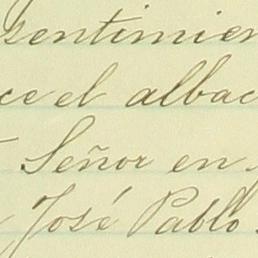 sentimien
ce el albac
Señor en
José Pablo